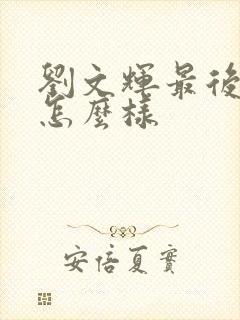 劉文輝最後
怎麼樣
安倍夏實